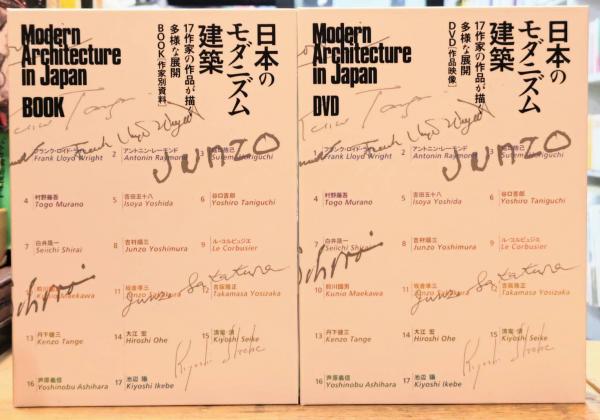 Modern
Architecture
in Japan
BOOK
日本の
モダニズム
建築
17作家の作品が描く
多様な展開
BOOK[作家別資料]
JUNZO
フランク・ロイド・ライト
Frank Lloyd Wright
2 アントニン・レーモンド
Antonin Raymond
3
Sutemi Horiguchi
4 村野藤吾
Togo Murano
5 吉田五十八
Isoya Yoshida
6 谷口吉郎
Yoshiro Taniguchi
7 白井晟一
Seiichi Shirai
8 吉村順三
Junzo Yoshimura
9 ル・コルビュジエ
Le Corbusier
10 前川國男
Kunio Maekawa
11 坂倉準三
Junzo Sakakura
12 吉阪隆正
Takamasa Yosizaka
13 丹下健三
Kenzo Tange
14 大江 宏
Hiroshi Ohe
15 清家 清
Kiyoshi Seike
16 芦原義信
Yoshinobu Ashihara
17 池辺 陽
Kiyoshi Ikebe
Modern
Architecture
in Japan
DVD
日本の
モダニズム
建築
17作家の作品が描く
多様な展開
DVD[作品映像]
JUNZO
フランク・ロイド・ライト
Frank Lloyd Wright
2 アントニン・レーモンド
Antonin Raymond
3
Sutemi Horiguchi
4 村野藤吾
Togo Murano
5 吉田五十八
Isoya Yoshida
6 谷口吉郎
Yoshiro Taniguchi
7 白井晟一
Seiichi Shirai
8 吉村順三
Junzo Yoshimura
9 ル・コルビュジエ
Le Corbusier
10 前川國男
Kunio Maekawa
11 坂倉準三
Junzo Sakakura
12 吉阪隆正
Takamasa Yosizaka
13 丹下健三
Kenzo Tange
14 大江 宏
Hiroshi Ohe
15 清家 清
Kiyoshi Seike
16 芦原義信
Yoshinobu Ashihara
17 池辺 陽
Kiyoshi Ikebe